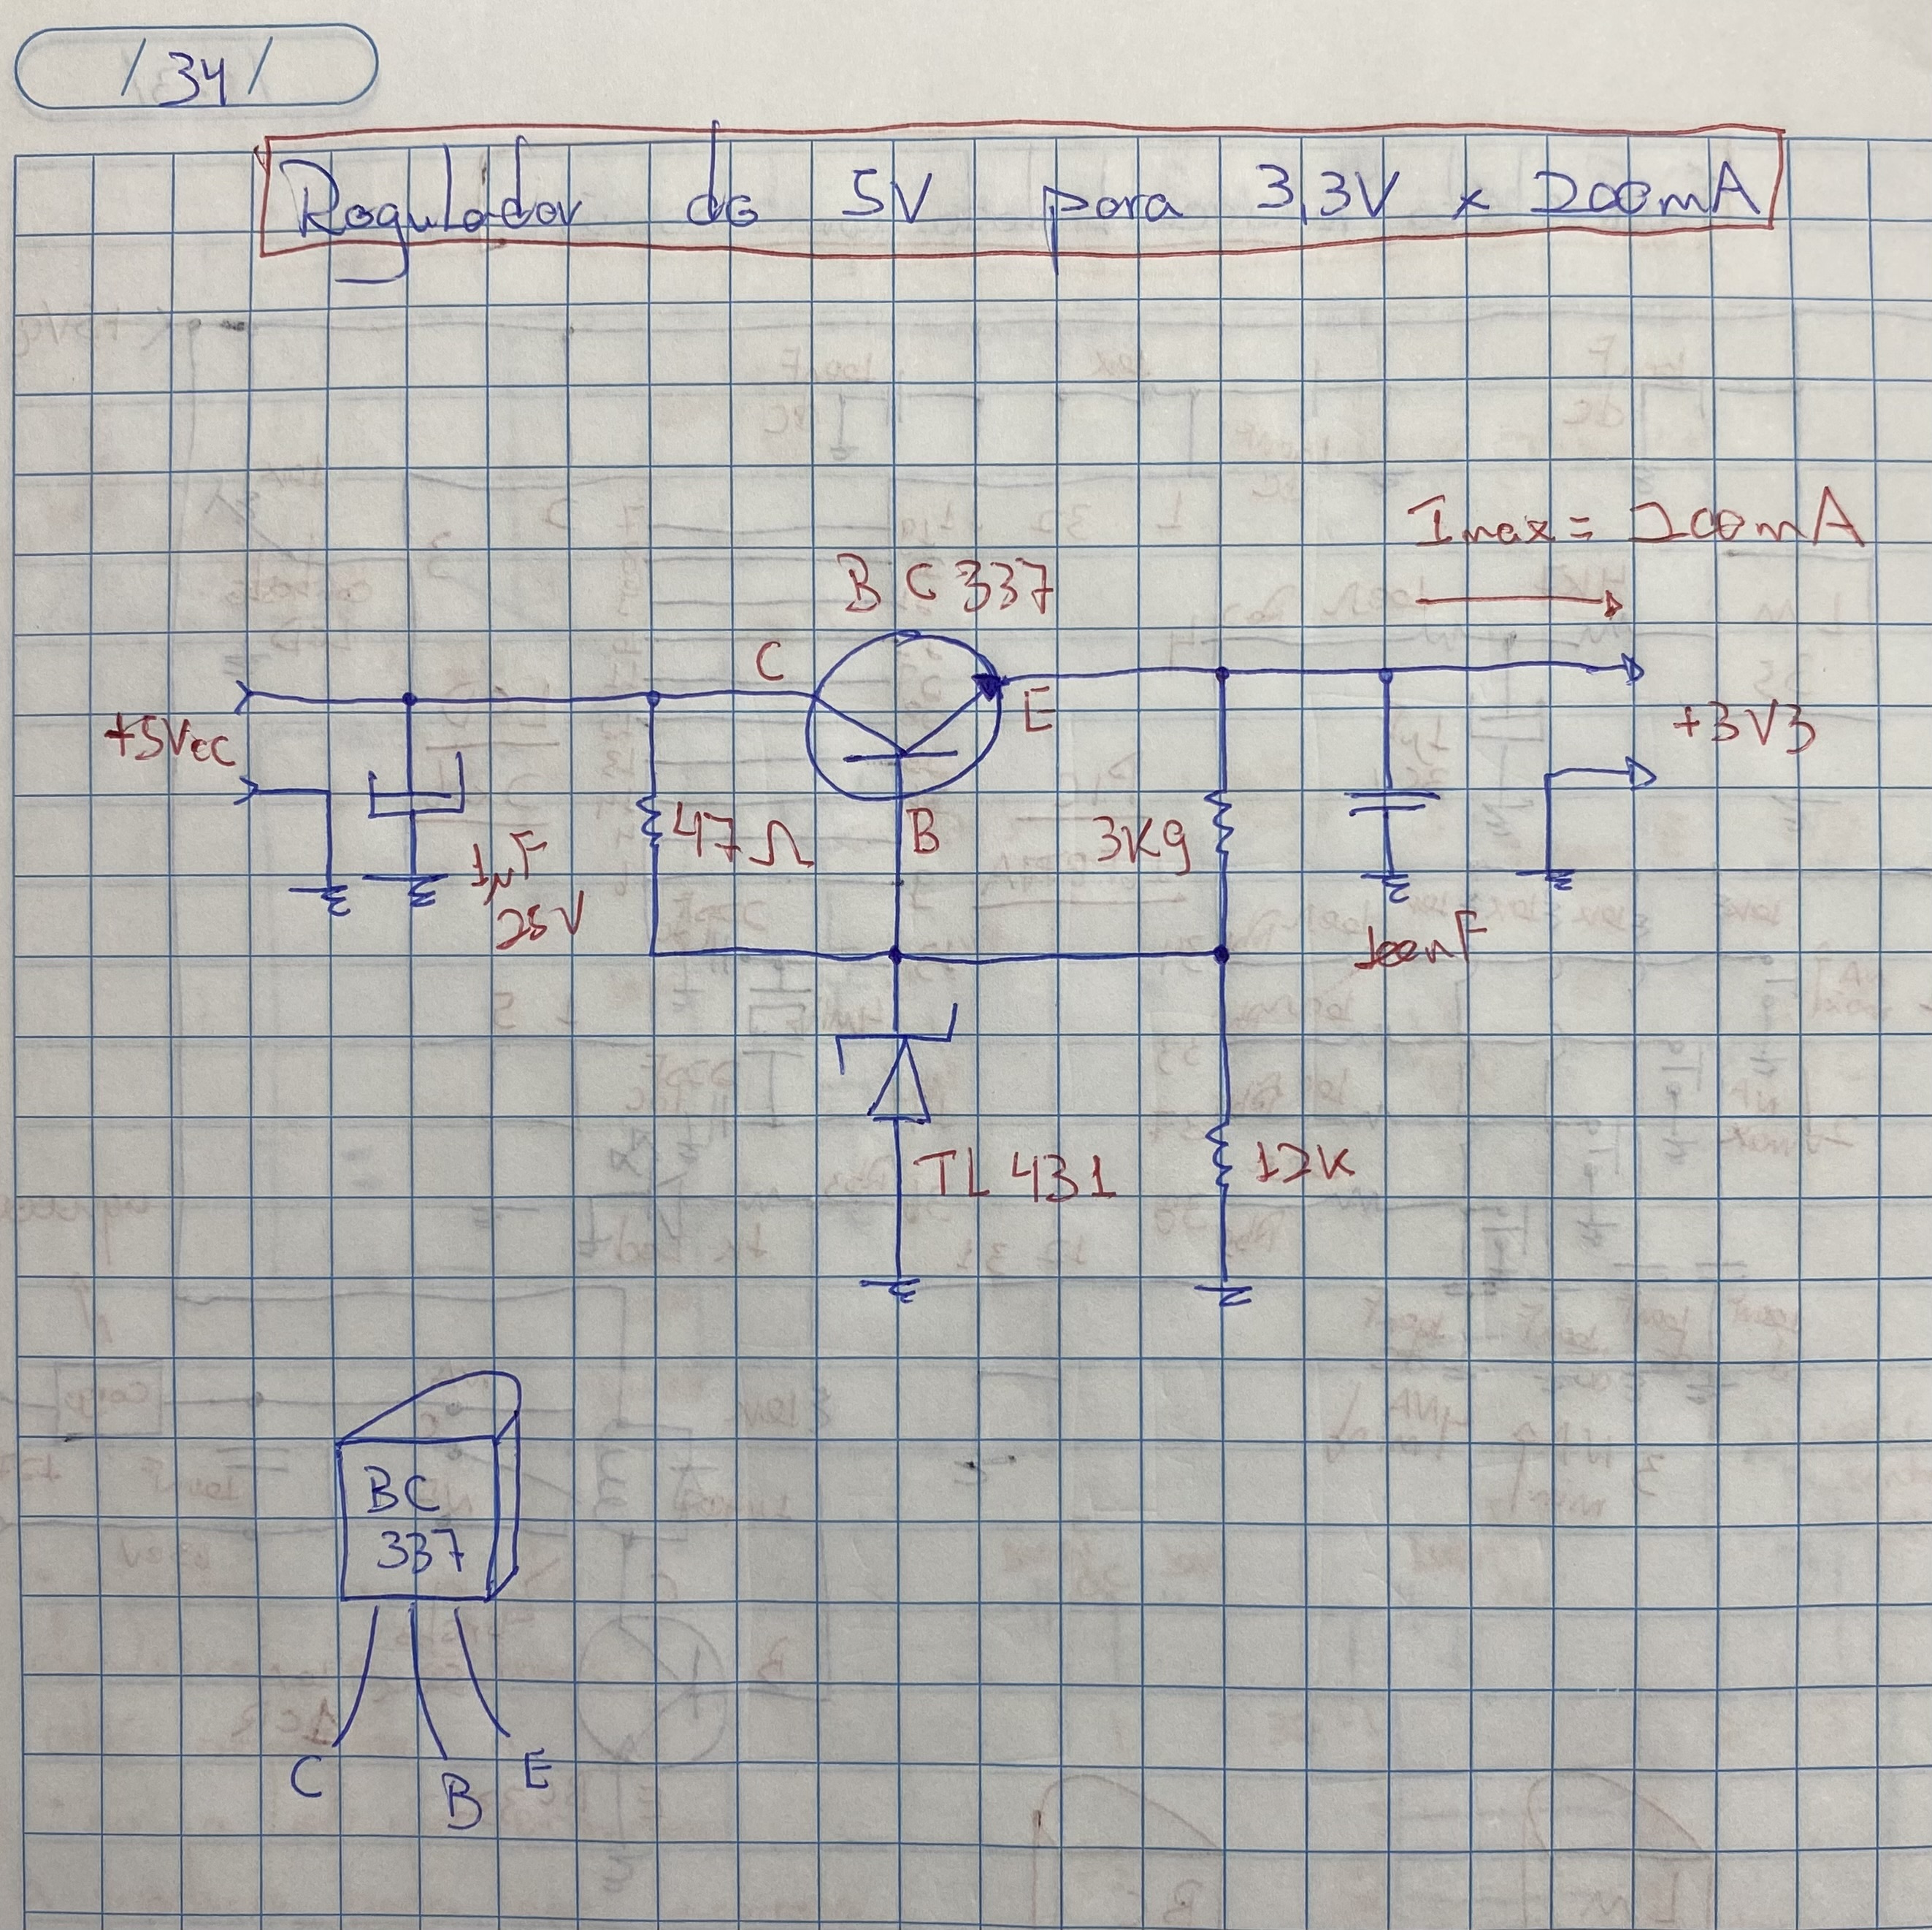 / 34 /
Regulador de 5V para 3,3V x 200mA
Imax = 200mA
BC337
C
E
+5Vcc
+3V3
B
47Ω
3K9
1µF
25V
100nF
TL431
12K
BC
337
C
B
E